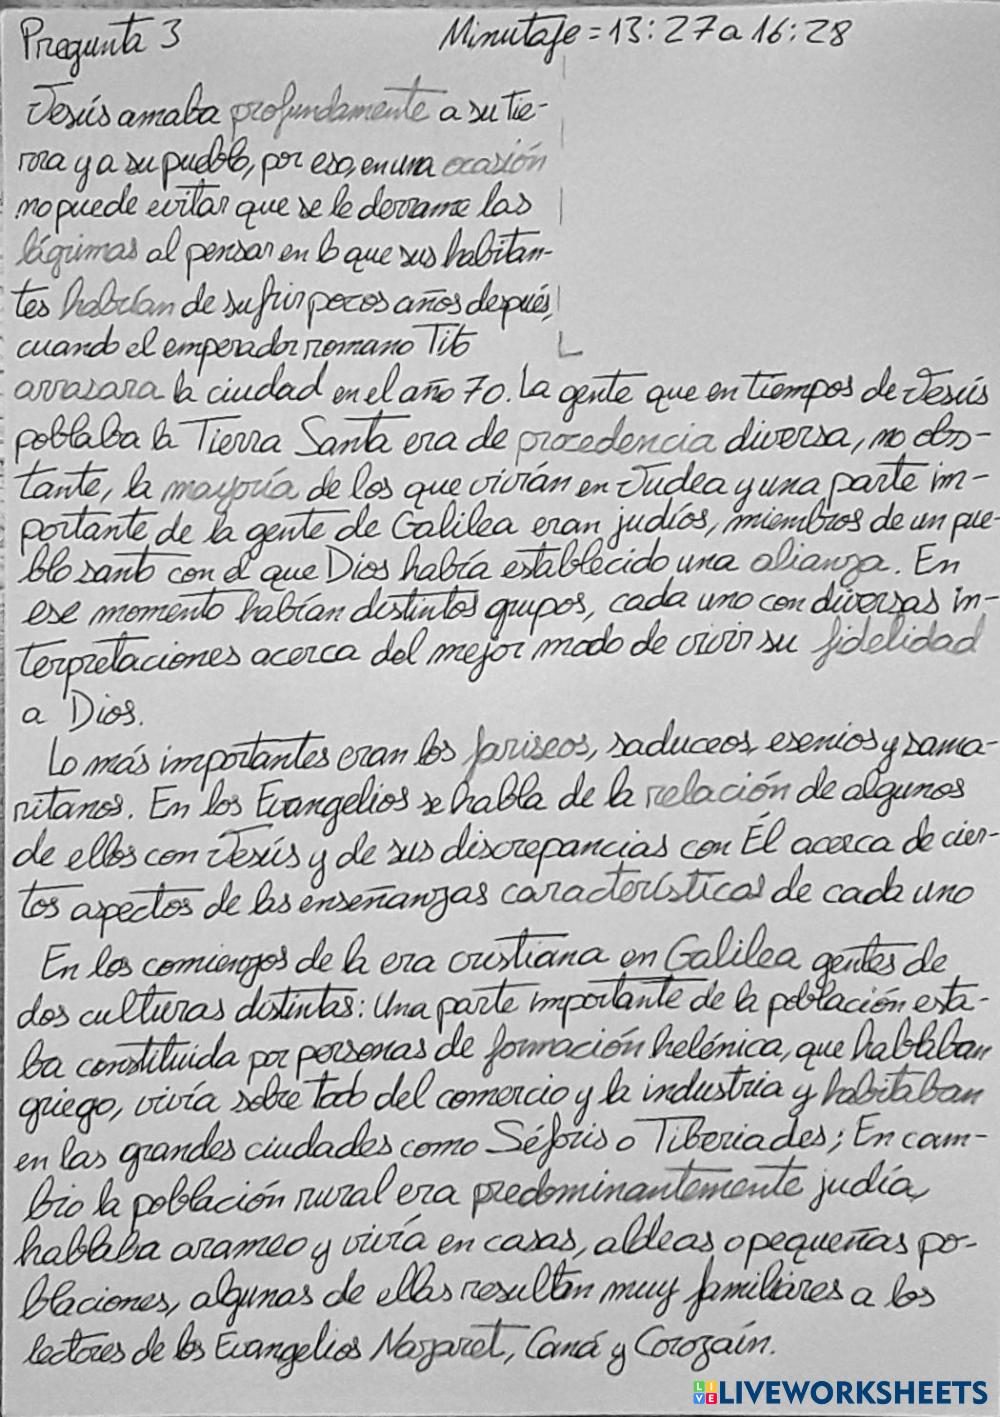 Pregunta 3
Minutaje = 13:27 a 16:28
Jesús amaba profundamente a su tie-
rra y a su pueblo, por eso, en una ocasión
no puede evitar que se le derrame las
lágrimas al pensar en lo que sus habitan-
tes habrían de sufrir pocos años después,
cuando el emperador romano Tito
arrasara la ciudad en el año 70. La gente que en tiempos de Jesús
poblaba la Tierra Santa era de procedencia diversa, no obs-
tante, la mayoría de los que vivián en Judea y una parte im-
portante de la gente de Galilea eran judíos, miembros de un pue-
blo santo con el que Dios había establecido una alianza. En
ese momento habían distintos grupos, cada uno con diversas in-
terpretaciones acerca del mejor modo de vivir su fidelidad
a Dios.
Lo más importantes eran los fariseos, saduceos, esenios y sama-
ritanos. En los Evangelios se habla de la relación de algunos
de ellos con Jesús y de sus discrepancias con Él acerca de cier-
tos aspectos de las enseñanzas características de cada uno
En los comienzos de la era cristiana en Galilea gentes de
dos culturas distintas: Una parte importante de la población esta-
ba constituida por personas de formación helénica, que hablaban
griego, vivía sobre todo del comercio y la industria y habitaban
en las grandes ciudades como Séforis o Tiberiades; En cam-
bio la población rural era predominantemente judía,
hablaba arameo y vivía en casas, aldeas o pequeñas po-
blaciones, algunas de ellas resultan muy familiares a los
lectores de los Evangelios Nazaret, Caná y Corozaín.
LIVEWORKSHEETS